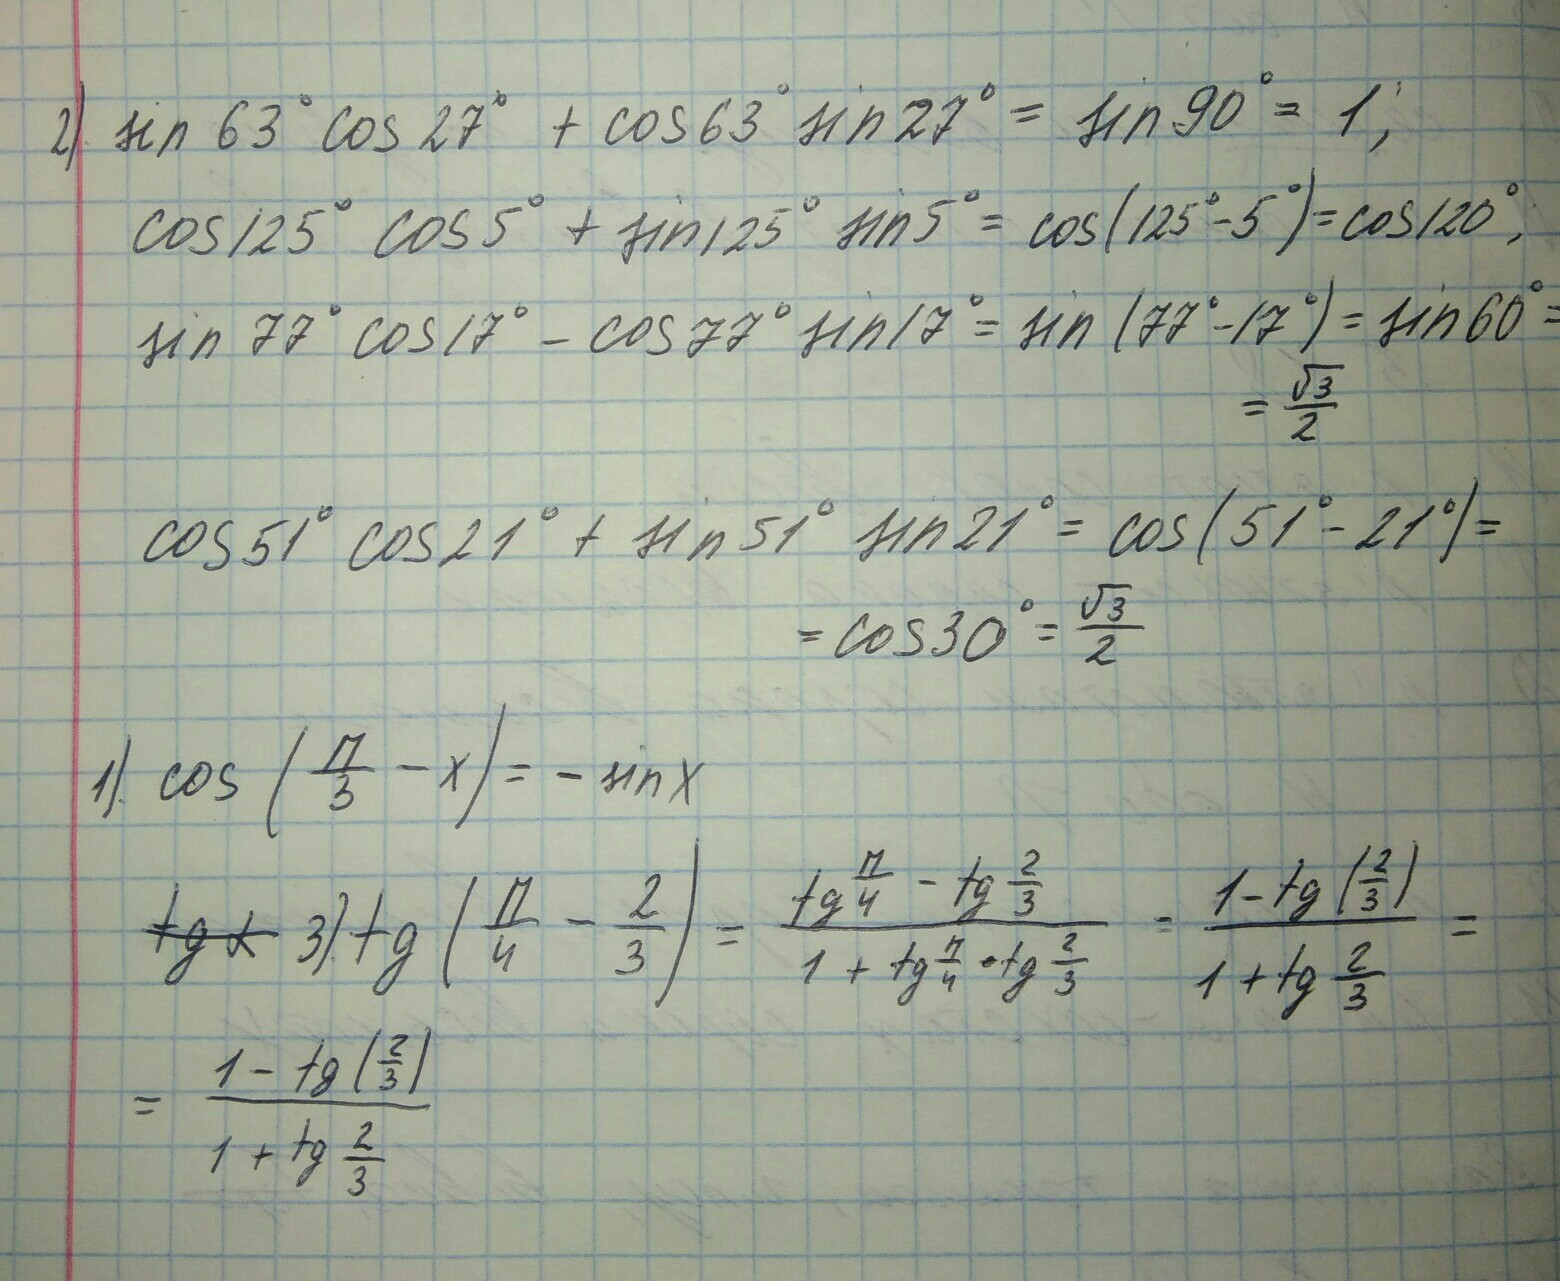 2) sin 63° cos 27° + cos 63° sin 27° = sin 90° = 1;
cos 125° cos 5° + sin 125° sin 5° = cos(125° - 5°) = cos 120°;
sin 77° cos 17° - cos 77° sin 17° = sin (77° - 17°) = sin 60° =
= √3/2
cos 51° cos 21° + sin 51° sin 21° = cos(51° - 21°) =
= cos 30° = √3/2
1) cos (π/3 - x) = - sin x
tg α 3) tg (π/4 - 2/3) = (tg π/4 - tg 2/3)/(1 + tg π/4 · tg 2/3) = (1 - tg (2/3))/(1 + tg 2/3) =
= (1 - tg (2/3))/(1 + tg 2/3)